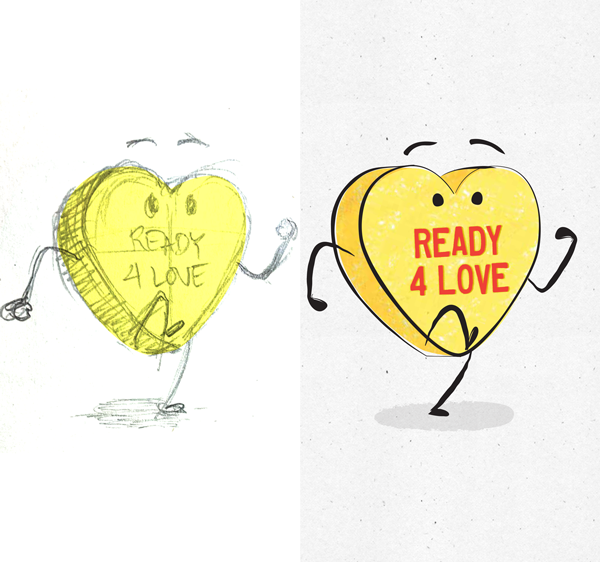 READY
4 LOVE
READY
4 LOVE